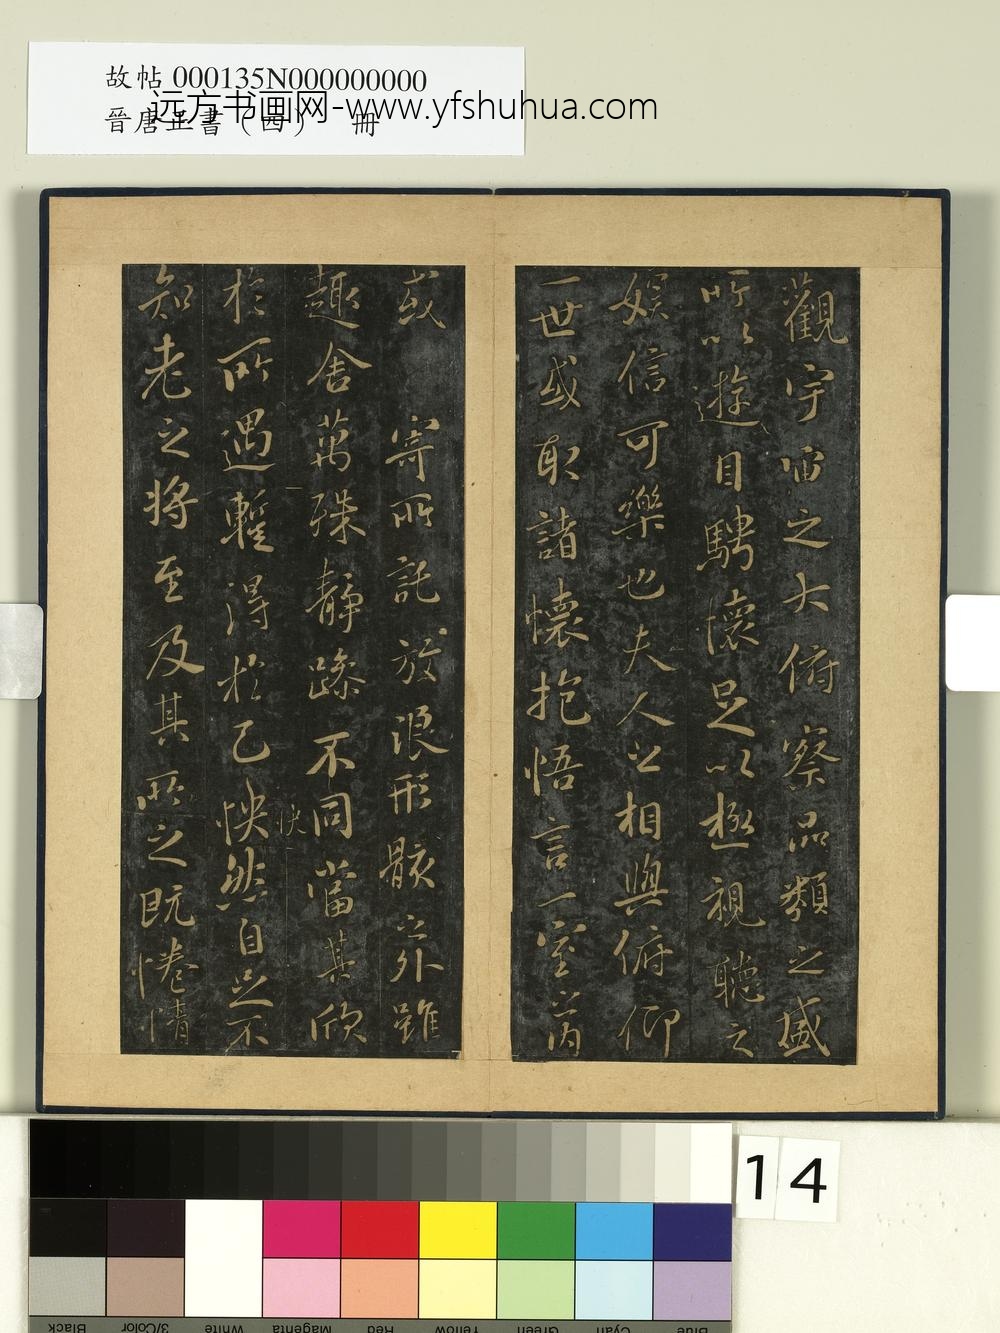 故帖 000135N000000000
晉唐正書（四） 冊
远方书画网-www.yfshuhua.com
觀宇宙之大俯察品類之盛
所以遊目騁懷足以極視聽之
娛信可樂也夫人之相與俯仰
一世或取諸懷抱悟言一室之內
或寄所託放浪形骸之外雖
趣舍萬殊靜躁不同當其欣
於所遇暫得於己怏然自足不
快
知老之將至及其所之既惓情
14
Black
3/Color
White
Magenta
Red
Yellow
Green
Cyan
Blue